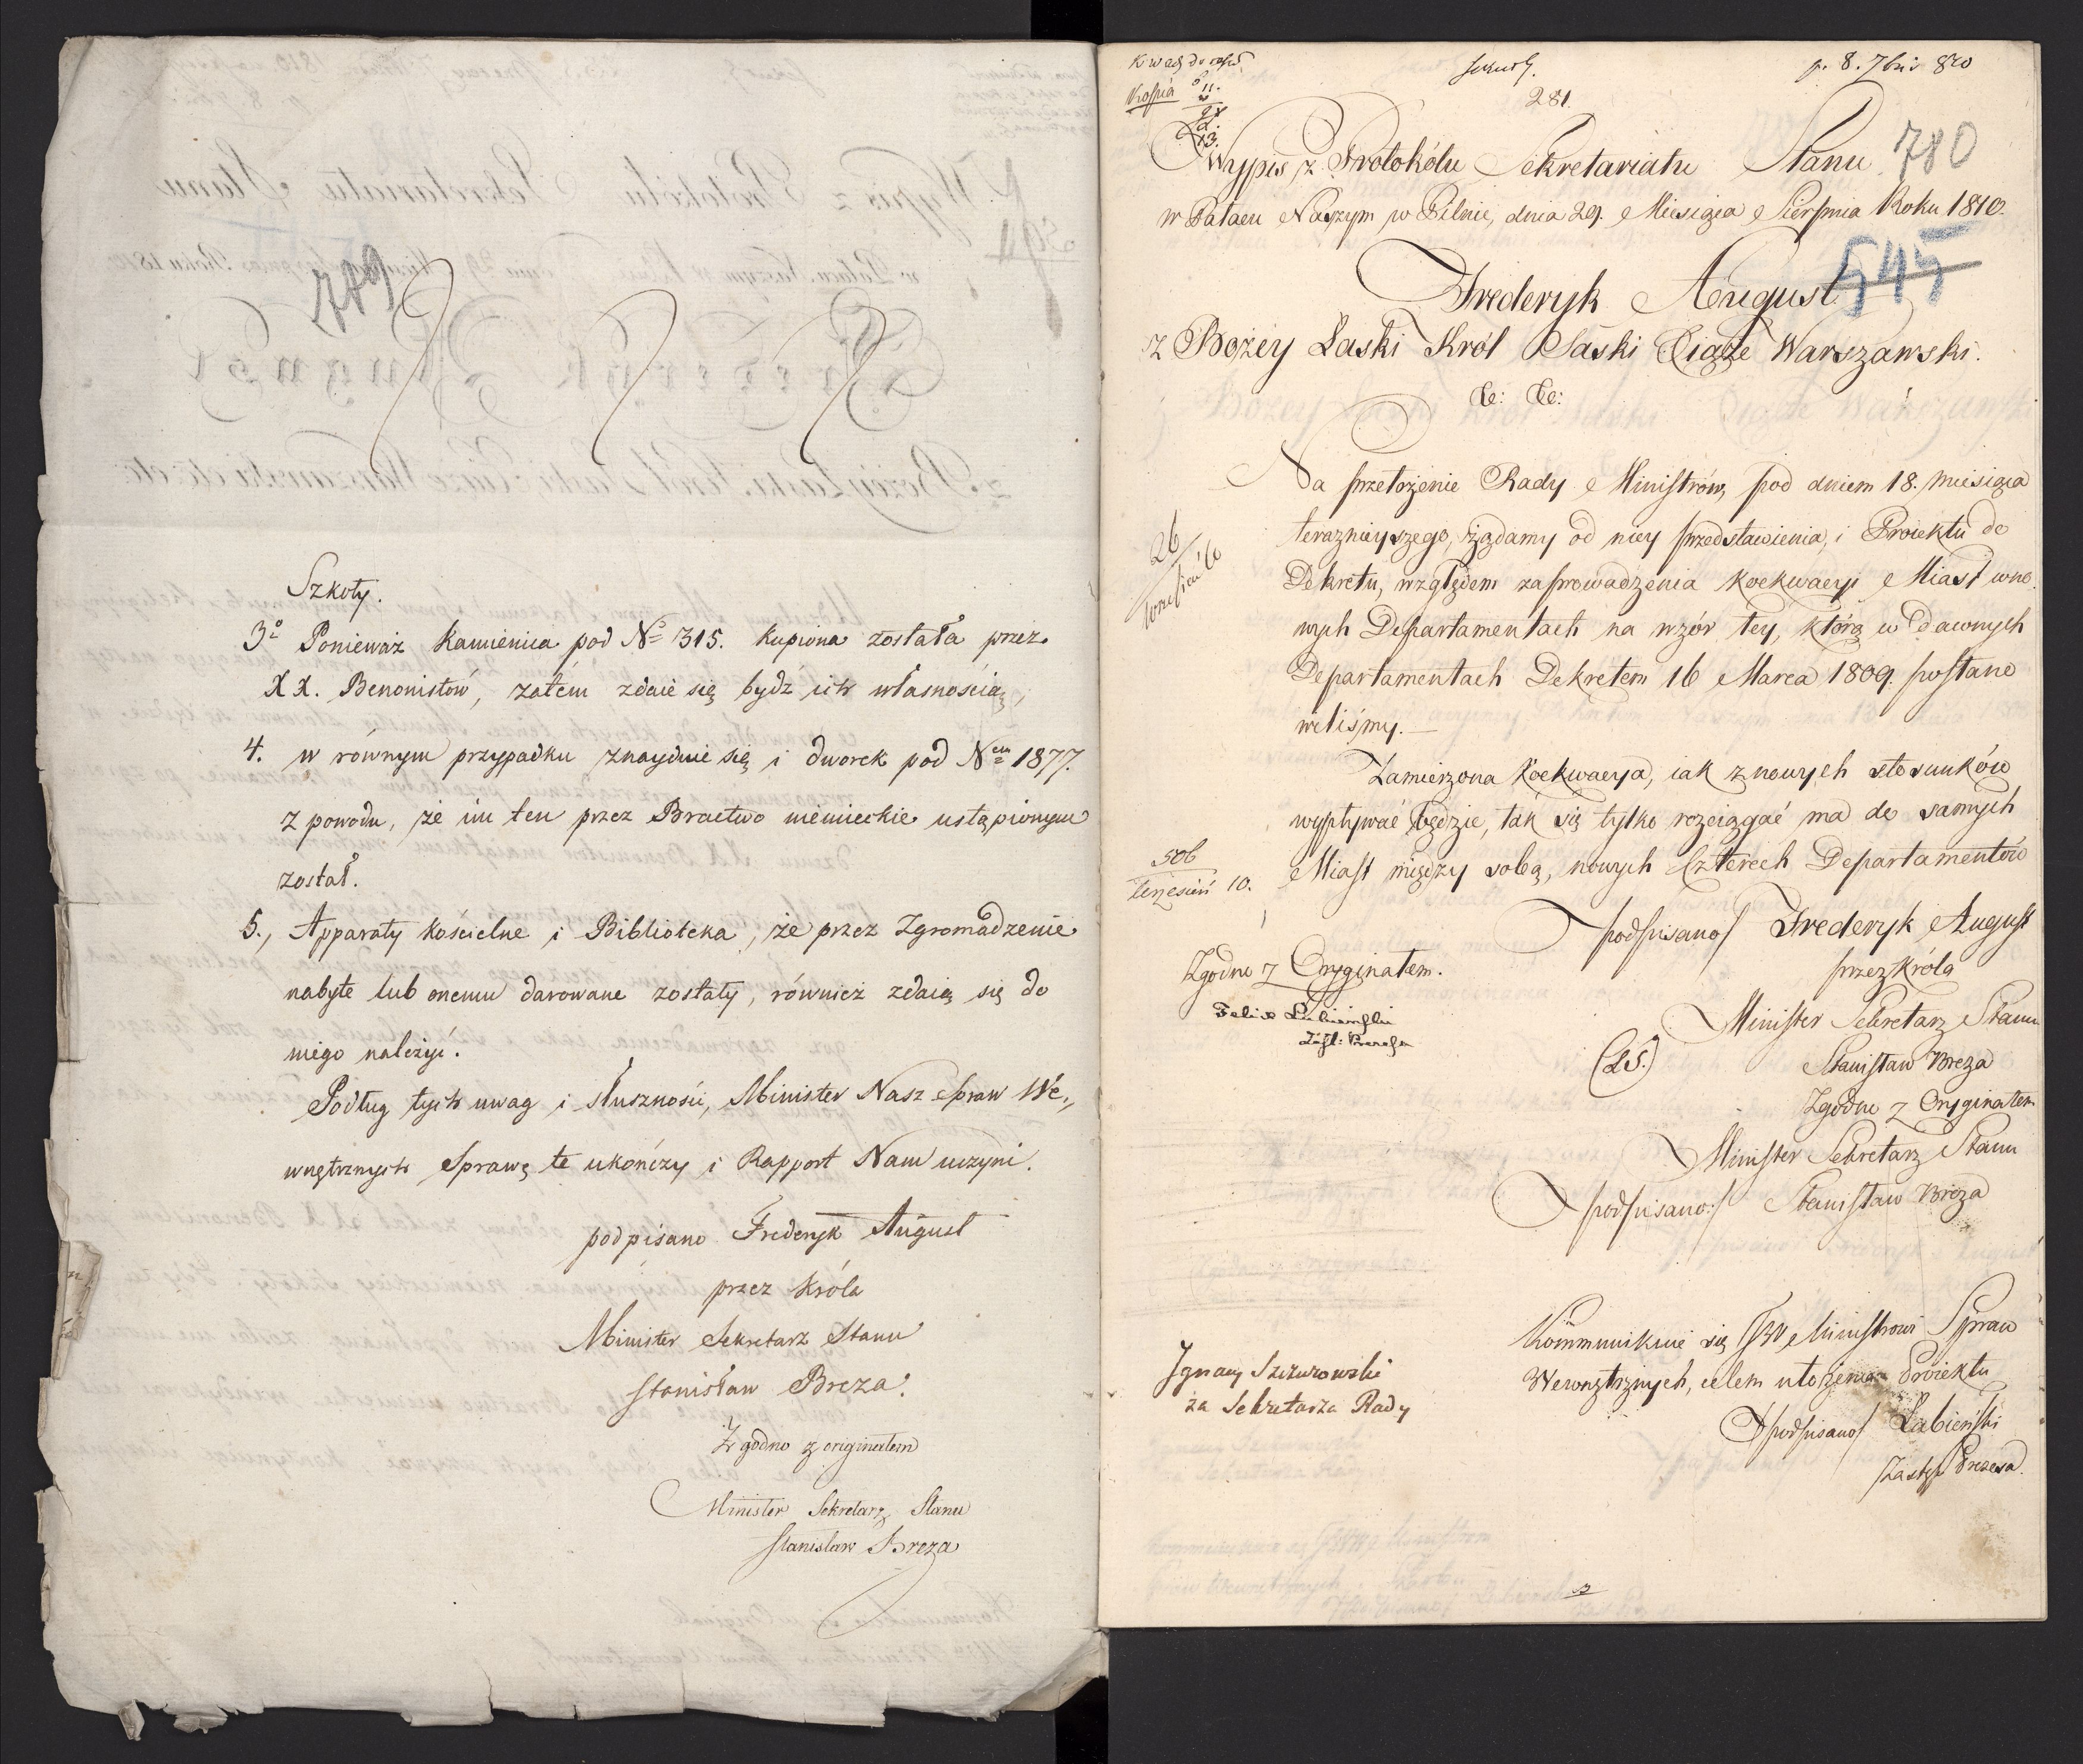 Szkoły.
3º Ponieważ kamienica pod Nº 315. kupiona została przez
XX. Benonistów, zatém zdaie się bydź ich własnością,
4. w równym przypadku znayduie się i dworek pod Nem 1877.
z powodu, że im ten przez Bractwo niemieckie ustąpionym
został.
5., Apparaty kościelne i Biblioteka, że przez Zgromadzenie
nabyte lub onemu darowane zostały, również zdaią się do
niego należyć.
Podług tych uwag i słuszności, Minister Nasz Spraw We-,
wnętrznych Sprawę te ukończy i Rapport Nam uczyni.
podpisano Frederyk August
przez Króla
Minister Sekretarz Stanu
Stanisław Breza.
Zgodno z originałem
Minister Sekretarz Stanu
Stanisław Breza
749
Kopia
p. 8. 7bris 810
281.
780
Wypis z Protokółu Sekretariatu Stanu
w Pałacu Naszym w Pilnie, dnia 29. Miesiąca Sierpnia Roku 1810.
545
Frederyk August
z Bożey Łaski Król Saski Xiąże Warszawski.
&c: &c:
Na przełożenie Rady Ministrów, pod dniem 18. miesiąca
teraznieyszego, żądamy od niey przedstawienia, i Proiektu do
Dekretu, względem zaprowadzenia Koekwacyi Miast w no
wych Departamentach na wzór tey, którą w dawnych
Departamentach Dekretem 16 Marca 1809. postano
wiliśmy.—
Zamierzona Koekwacya, iak z nowych stosunków
wypływać będzie, tak się tylko rozciągać ma do samych
Miast między sobą, nowych Czterech Departamentów
26
Wrzesień 10
506
Wrzesień 10.
podpisano/ Frederyk August
przez Króla
Minister Sekretarz Stanu
(LS.)
Stanisław Breza
Zgodno z Oryginałem
Minister Sekretarz Stanu
/podpisano:/ Stanisław Breza
Zgodno z Oryginałem.
Felix Łubieński
Zastę: Prezesa
Kommunikuie się JW Ministrowi Spraw
Wewnętrznych, celem ułożenia Proiektu
/podpisano/ Łubieński
Zastęp Prezesa.
Ignacy Szczurowski
za Sekretarza Rady